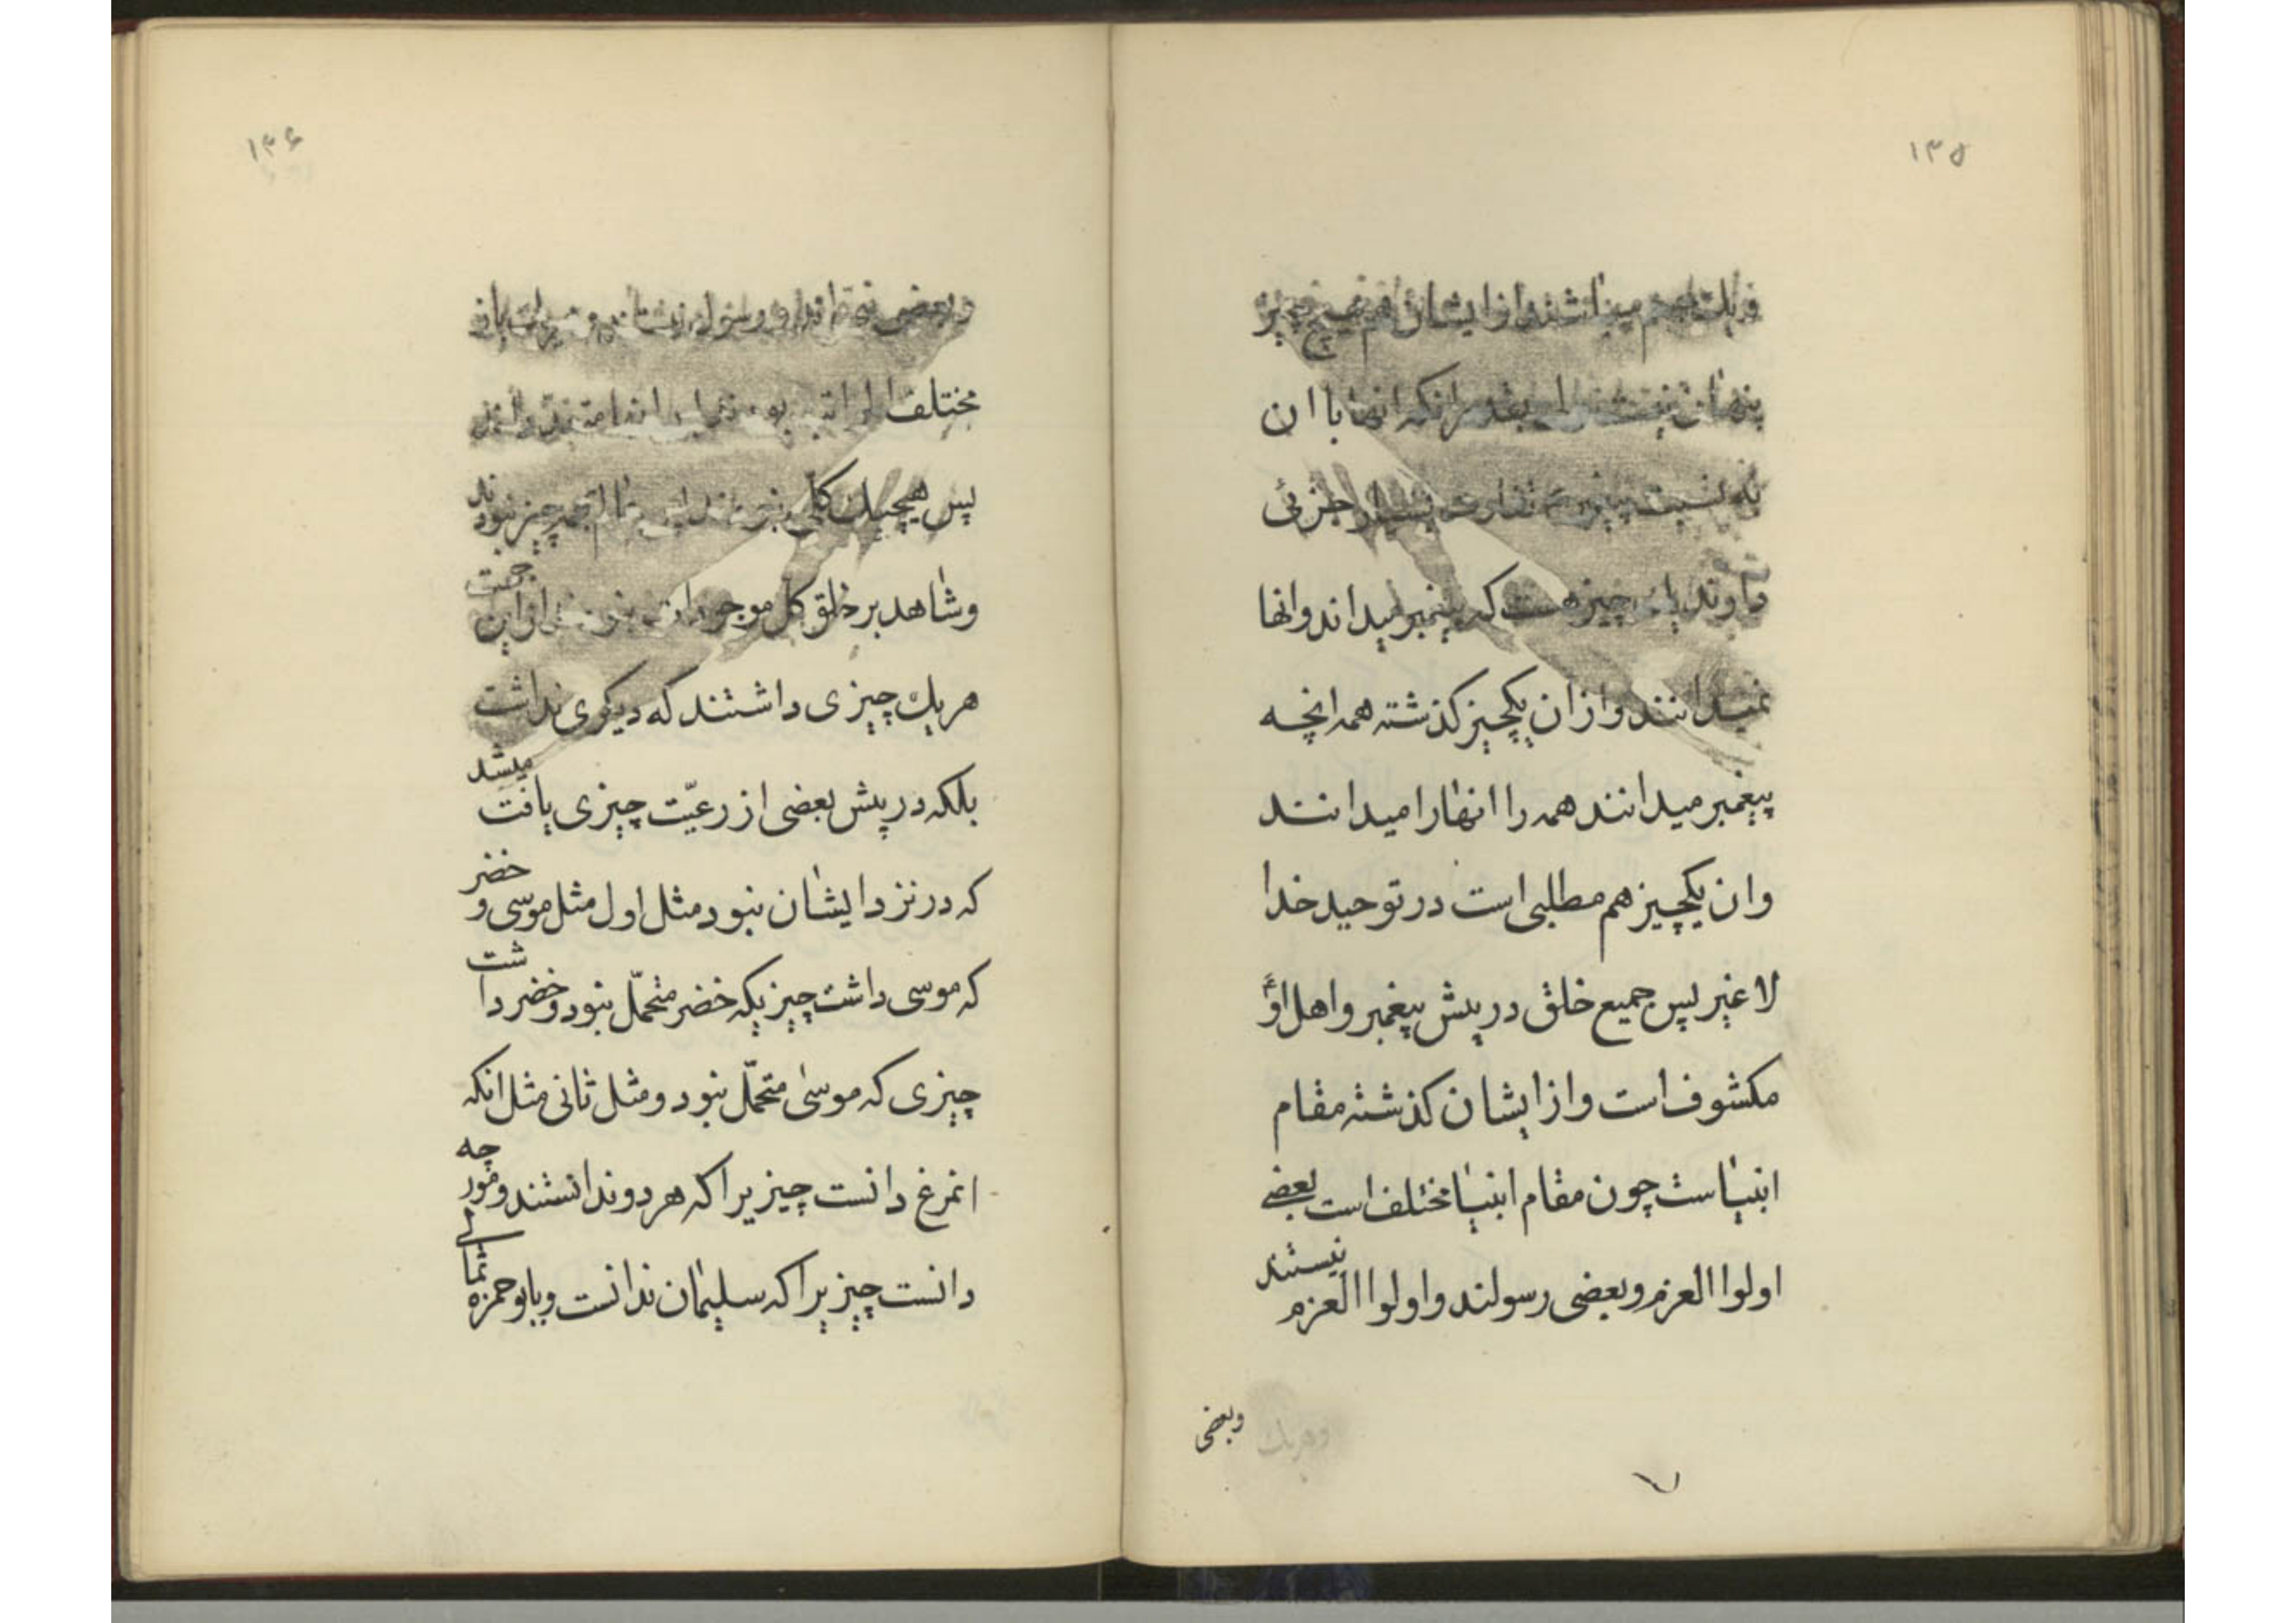 ۱۳۵
از ایشان هیچ چیز
پنهان نیست انکه انها با ان
جزئی
دارند یک چیز هست که پیغمبر میداند وانها
نمیدانند واز ان یکچیز کذشته همه انچه
پیغمبر میدانند همه را انها را میدانند
وان یکچیز هم مطلبی است در توحید خدا
لا غیر پس جمیع خلق در پیش پیغمبر واهل او
مکشوف است واز ایشان کذشته مقام
انبیاست چون مقام انبیا مختلف است بعضی
اولوا العزم وبعضی رسولند واولوا العزم نیستند
وبعضی
۱۳۶
وبعضی
مختلف
پس هیچیک چیز نبودند
وشاهد بر خلق کل موجودات از این جهت
هریک چیزی داشتند که دیکری نداشت
بلکه در پیش بعضی از رعیّت چیزی یافت میشد
که در نزد ایشان نبود مثل اول مثل موسی و خضر
که موسی داشت چیزیکه خضر متحمّل نبود وخضر داشت
چیزی که موسی متحمّل نبود ومثل ثانی مثل انکه
انمرغ دانست چیزیرا که هر دو ندانستند ومورچه
دانست چیزیرا که سلیمان ندانست وبابو حمزه ثمالی